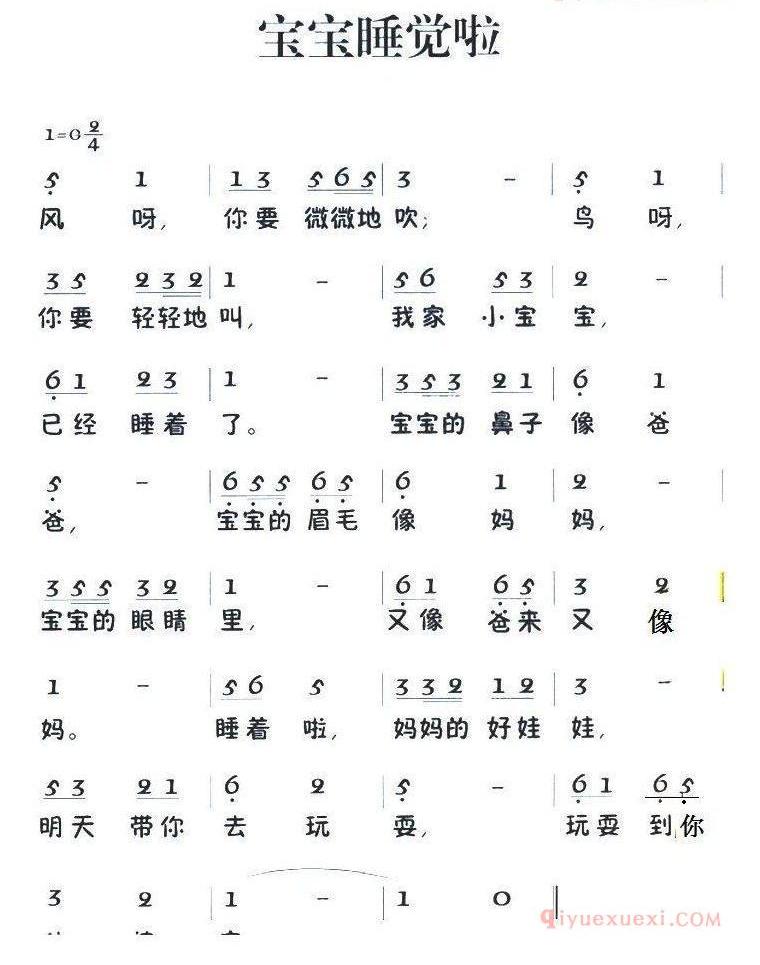 宝宝睡觉啦
1=C 2/4
5 1 | 1 3 5 6 5 | 3 - | 5 1 |
风 呀, 你要 微微地 吹; 鸟 呀,
3 5 2 3 2 | 1 - | 5 6 5 3 | 2 - |
你要 轻轻地 叫, 我家 小宝 宝,
6 1 2 3 | 1 - | 3 5 3 2 1 | 6 1
已经 睡着 了。 宝宝的 鼻子 像 爸
5 - | 6 5 5 6 5 | 6 1 | 2 -
爸, 宝宝的 眉毛 像 妈 妈,
3 5 5 3 2 | 1 - | 6 1 6 5 | 3 2 |
宝宝的 眼睛 里, 又像 爸来 又 像
1 - | 5 6 5 | 3 3 2 1 2 | 3 - |
妈。 睡着 啦, 妈妈的 好娃 娃,
5 3 2 1 | 6 2 | 5 - | 6 1 6 5
明天 带你 去 玩 耍, 玩耍 到你
3 2 | 1 - | 1 0 |
qiyuexuexi.COM